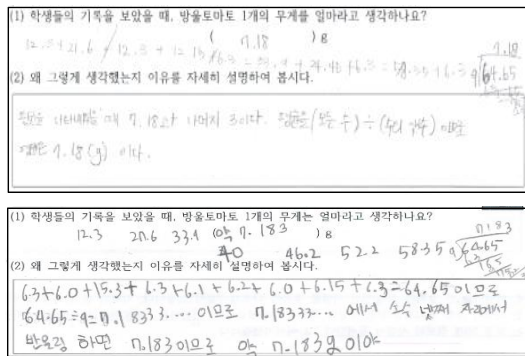 (1) 학생들의 기록을 보았을 때, 방울토마토 1개의 무게를 얼마라고 생각하나요?
( 7.18 ) g
7.18
64.65
(2) 왜 그렇게 생각했는지 이유를 자세히 설명하여 봅시다.
7.18 나머지 3이다. 평균은 (모든 수) ÷ (수의 갯수) 이므로
평균은 7.18 (g) 이다.
(1) 학생들의 기록을 보았을 때, 방울토마토 1개의 무게는 얼마라고 생각하나요?
12.3 27.6 33.9 (약 7.183 ) g
7.183
40 46.2 52.2 58.35 9 64.65
(2) 왜 그렇게 생각했는지 이유를 자세히 설명하여 봅시다.
6.3+6.0+15.3+6.3+6.1+6.2+6.0+6.15+6.3=64.65 이므로
64.65÷9=7.18333.... 이므로 7.18333... 에서 소수 넷째 자리에서
반올림 하면 7.183이므로 약 7.183g 이야